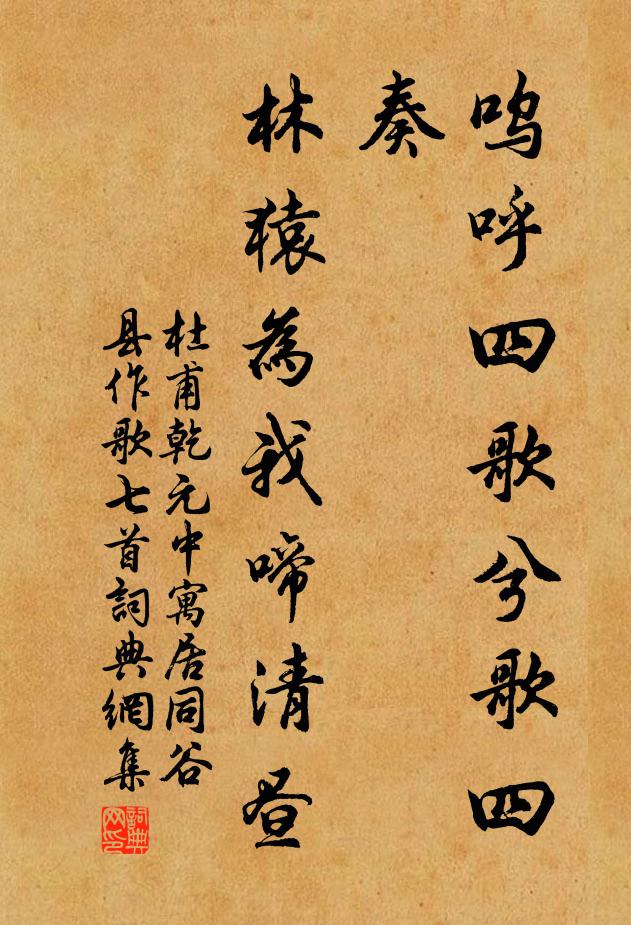 呜呼四歌兮歌四
奏
林猿為我啼清昼
杜甫乾元中寓居同谷
县作歌七首詞典網集
詞典
网印